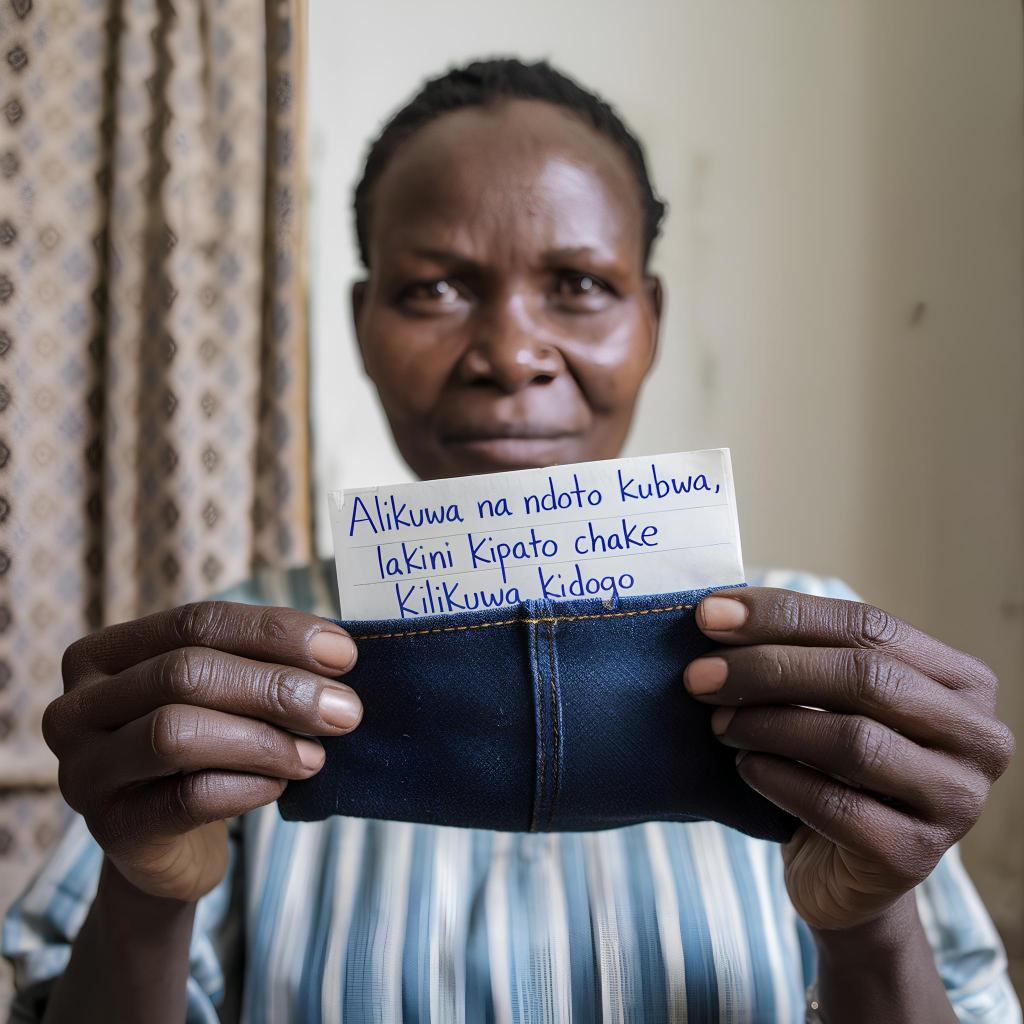 Alikuwa na ndoto kubwa,
lakini kipato chake
kilikuwa kidogo